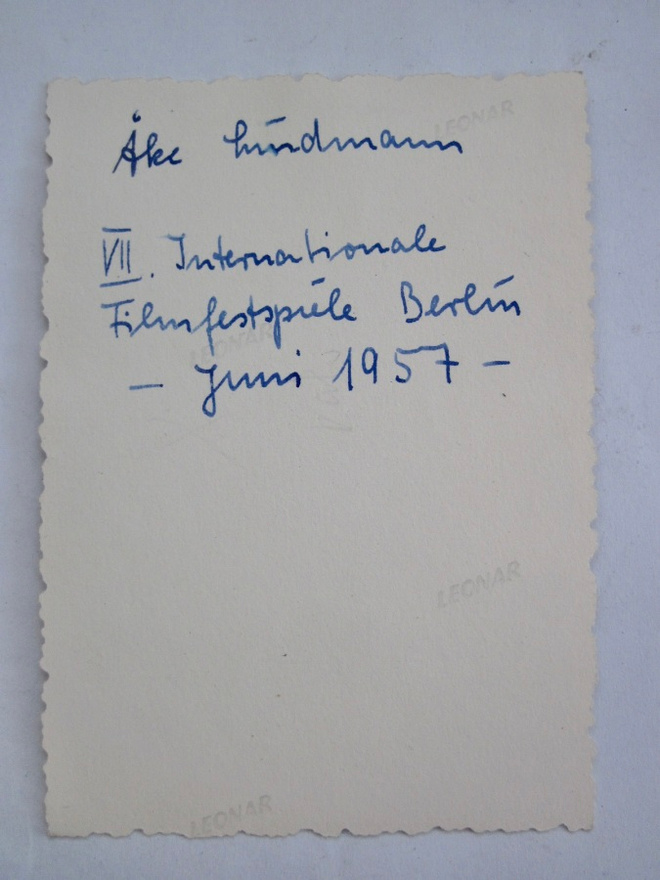 LEONAR
Åke Lindmann
VII. Internationale
Filmfestspiele Berlin
LEONAR
— Juni 1957 —
LEONAR
LEONAR